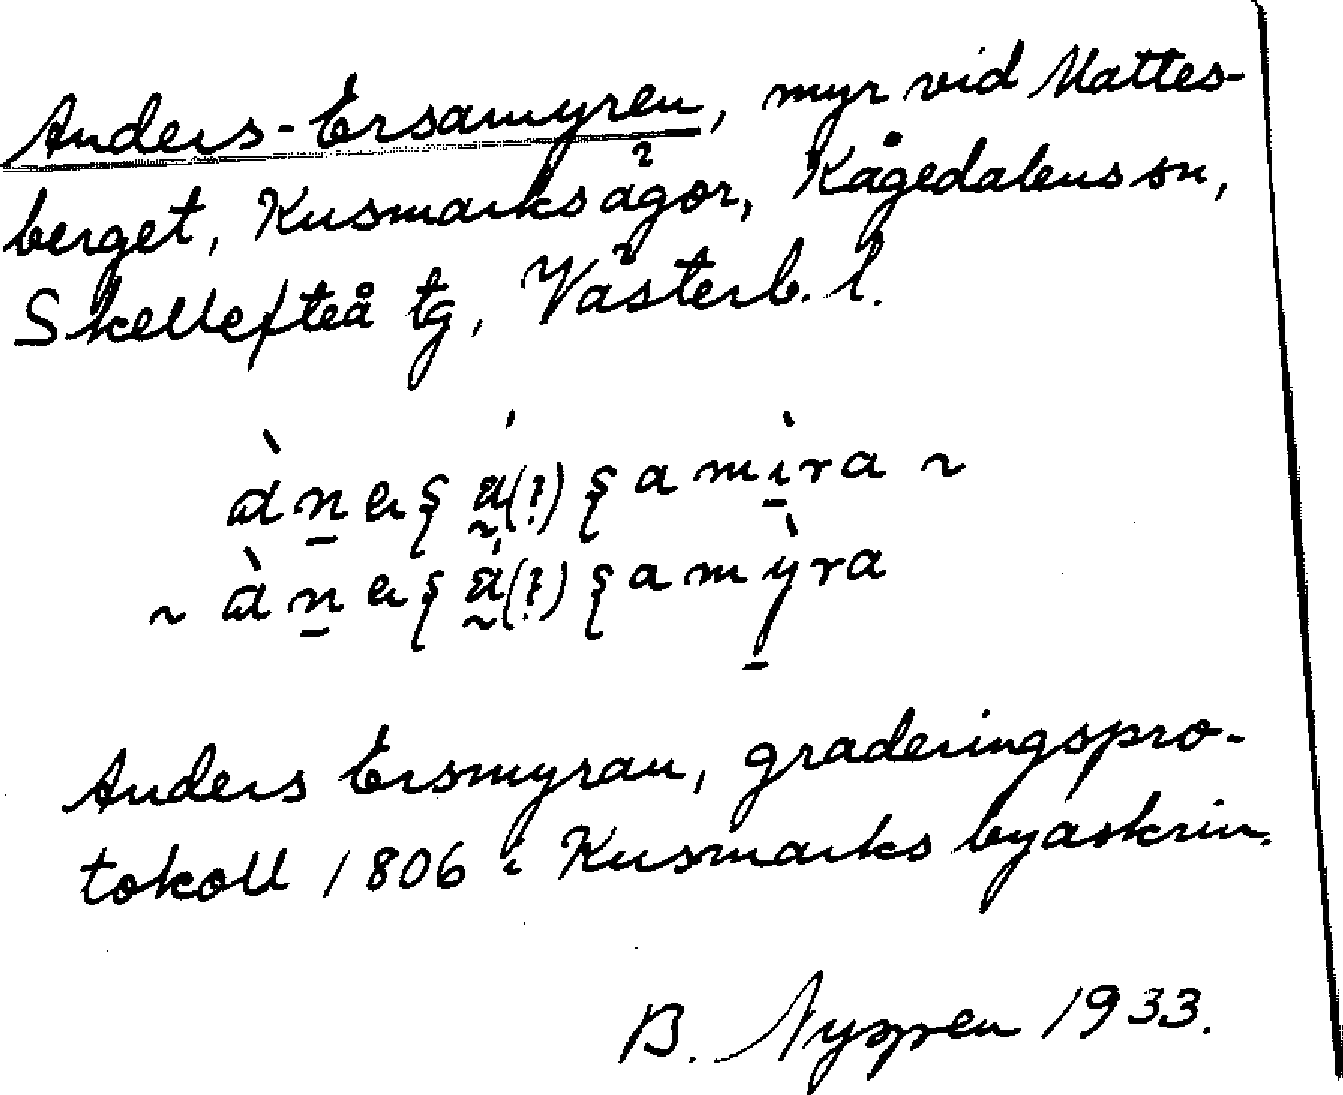 Anders-Ersamyren, myr vid Mattes-
berget, Kusmarks ägor, Kågedalens sn,
Skellefteå tg, Västerb. l.
Anders Ersmyran, graderingspro-
tokoll 1806 i Kusmarks byaskrin.
B. 1933.